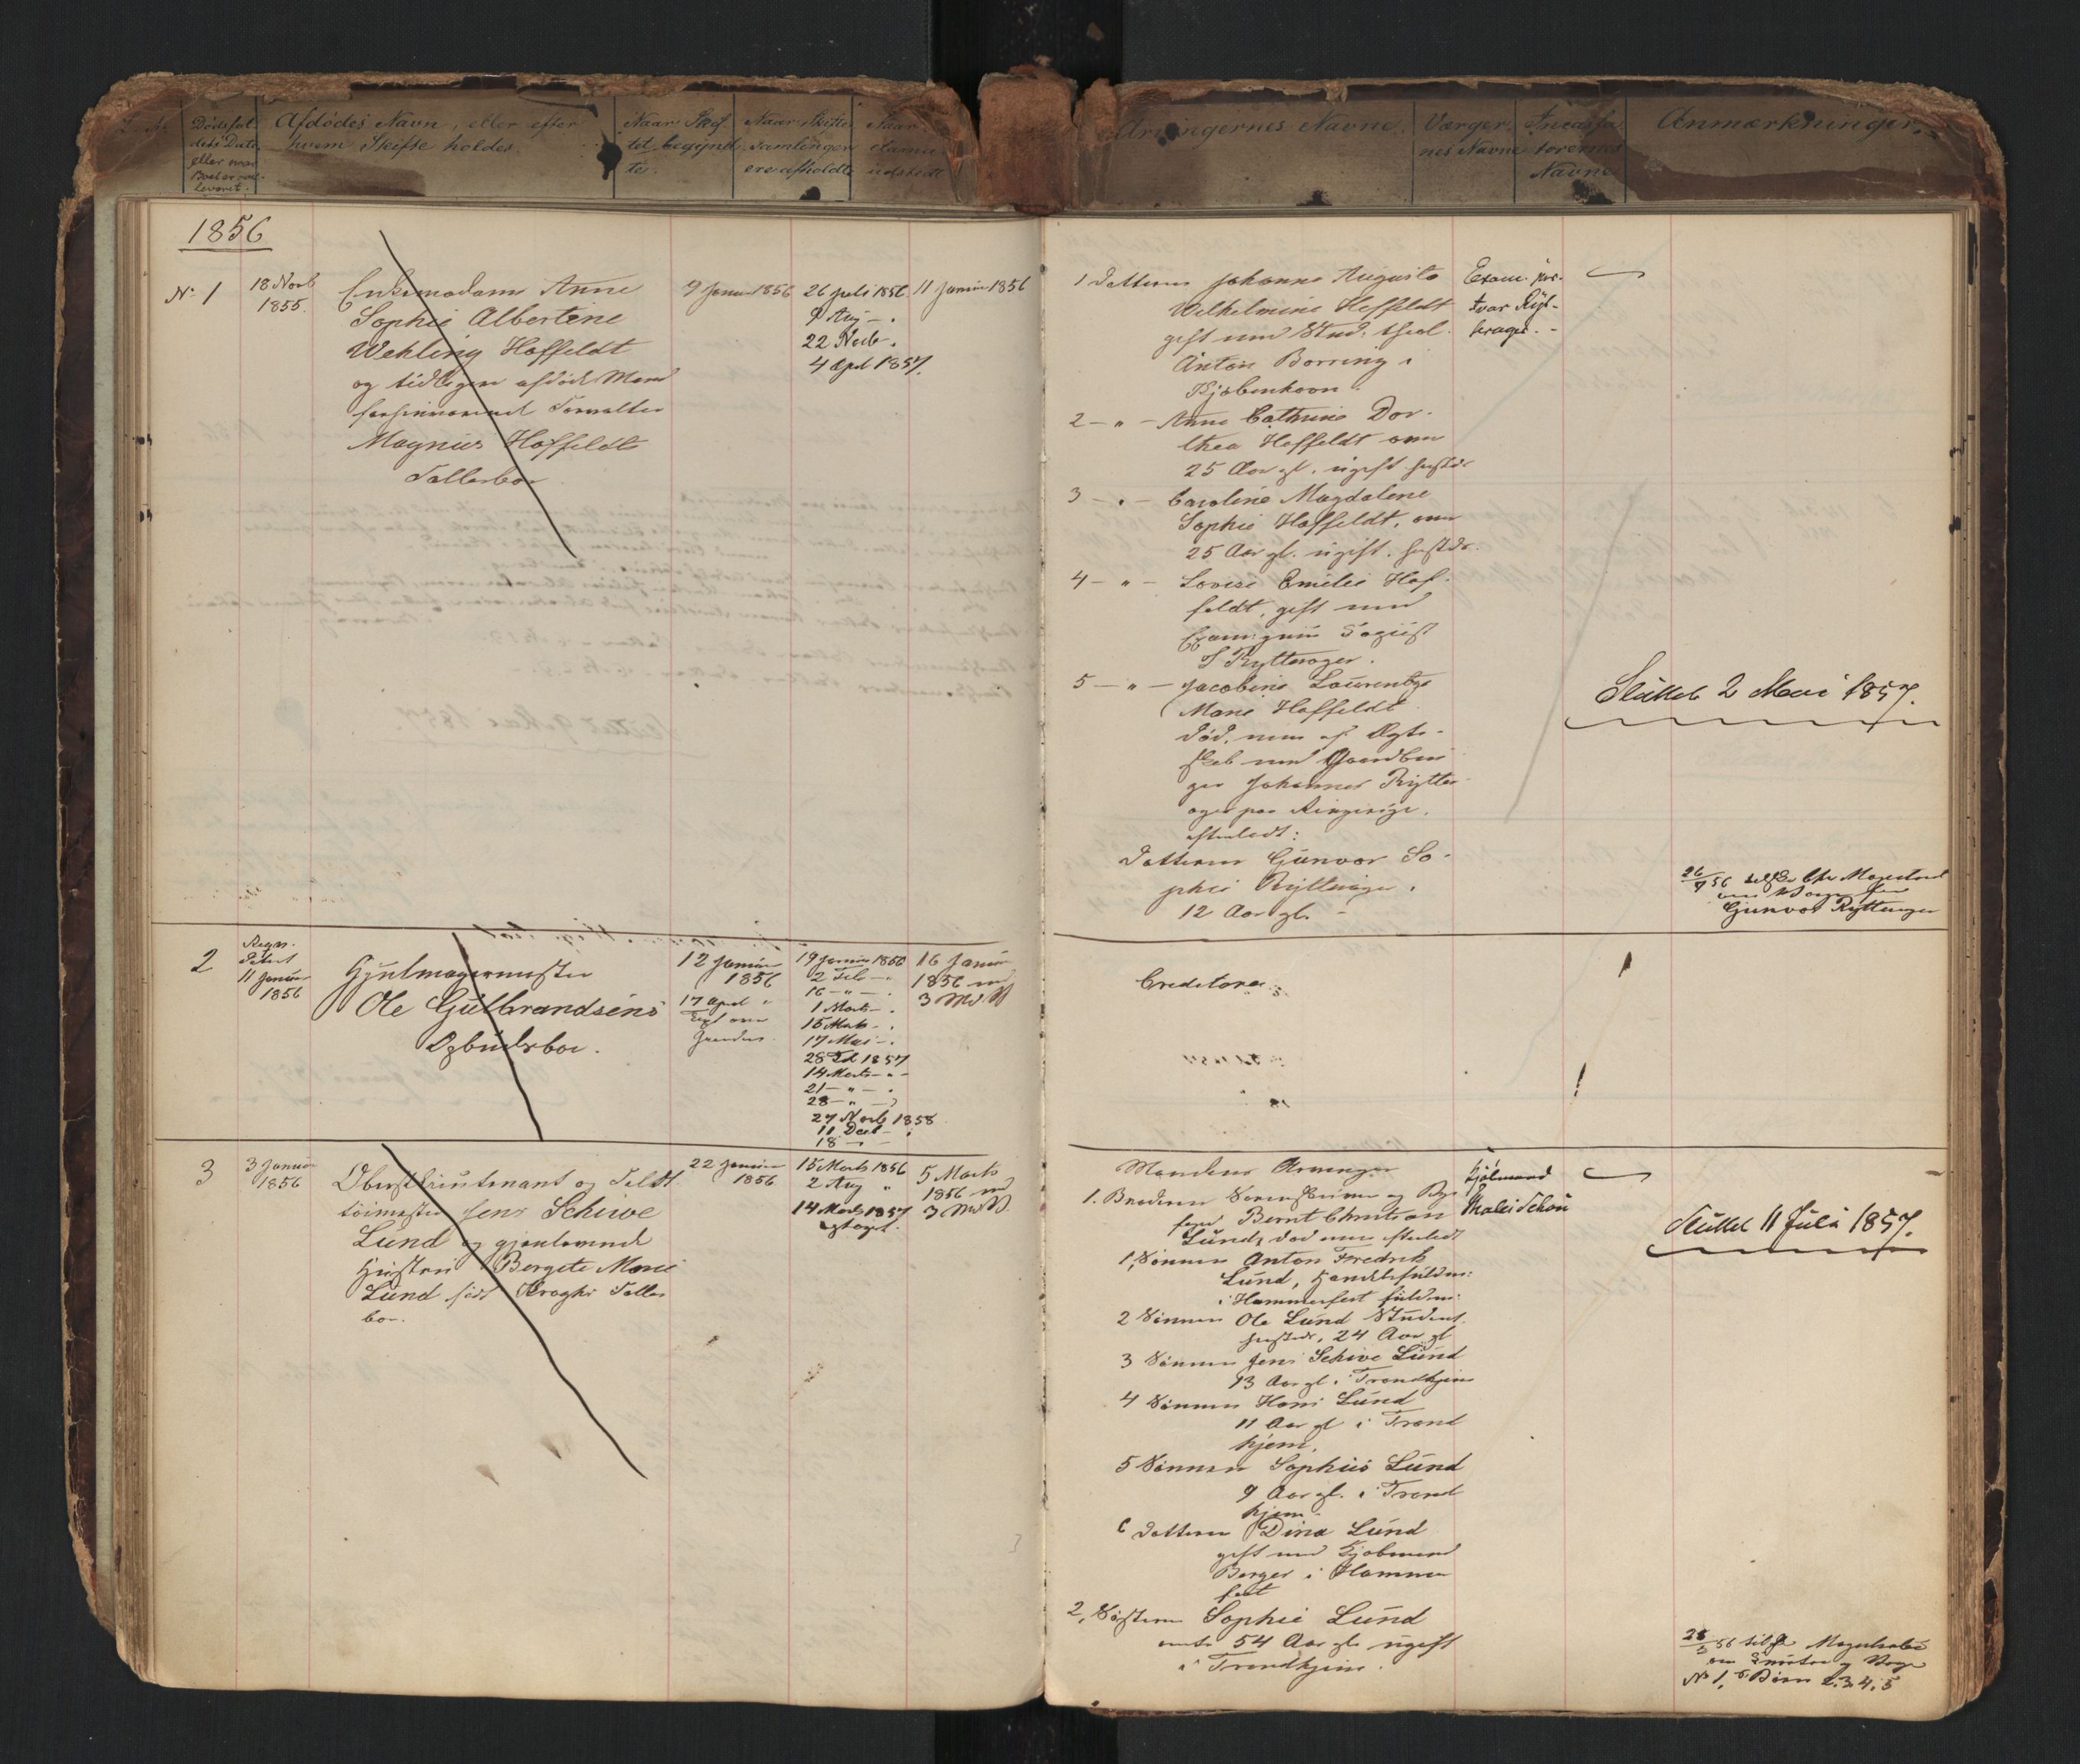 Dødsfal-
dets Dato
eller naar
Boet er over-
leveret.
Afdødes Navn, eller efter
hvem Skifte holdes.
Naar Skif-
tet begynd-
te.
Naar Skifte-
samlingen
ere afholdt
Naar
udstedt
Arvingernes Navne.
Værger-
nes Navne
Incassa-
torernes
Navne
Anmærkninger.
1856
No 1
18 Novb
1855.
Enkemadam Anne
Sophie Albertine
Wehling Hoffeldt
og tidligere afdøde Mand
forhenværende Forvalter
Magnus Hoffeldts
Fællesbo
9 Januar 1856
26 Juli 1856
9 Aug — .
22 Novb .
4 April 1857.
11 Januar 1856
1 Datteren Johanne Augusta
Wilhelmine Hoffeldt
gift med Stud. theol.
Anton Borring i
Kjøbenhavn.
2 — " — Anne Cathrine Dor-
thea Hoffeldt over
25 Aar gl. ugift hersteds
3 — " — Caroline Magdalene
Sophie Hoffeldt, over
25 Aar gl. ugift. hersteds.
4 — " — Lovise Emilie Hof-
feldt, gift med
Exam: juris
S Rytterager.
5 — " — Jacobine Laurentze
Marie Hoffeldt
død, men af Ægte-
skab med Gaardbru
ger Johannes Rytter
ager paa Ringerige.
efterladt:
Datteren Gunvor So-
phie Rytterager.
12 Aar gl. -
Exam. jur.
Ryt-
terager. -
Sluttet 2 Mai 1857.
26/7 56
Gunvor Rytterager
2
Regn.
11 Januar
1856
Hjulmagermester
Ole Gulbrandsens
Opbudsbo.
12 Januar
1856
17 April "
19 Januar 1856
2 Feb — "
16 — " — .
1 Marts — .
15 Marts - .
17 Mai — .
28 Feb 1857
14 Marts — " -
21 — " — .
28 — " —
27 Novb 1858
11 Decb — .
18 — " —
16 Januar
1856 med
3 Md V
Creditorer.
3
3 Januar
1856
Oberstlieutenant og Feldt
tøimester Jens Schive
Lund og gjenlevende
Hustru Bergete Marie
Lund født Kraghs Fælles
bo.
22 Januar
1856
15 Marts 1856
2 Aug "
14 Marts 1857
optaget.
5 Marts
1856 med
3 Md V.
Mandens Arvinger
1. Broderen Sorenskriver og By-
foged Bernt Christian
Lund, død men efterladt
1, Sønnen Anton Fredrik
Lund,
i Hammerfest
2 Sønnen Ole Lund Student
hersteds, 24 Aar gl
3 Sønnen Jens Schive Lund
13 Aar gl. i Trondhjem
4 Sønnen Hans Lund
11 Aar gl i Trond
hjem.
5 Sønnen Sophus Lund
9 Aar gl. i Trond
hjem
6 Datteren Dina Lund
gift med Kjøbmand
Berger i Hammer
fest
2, Søsteren Sophie Lund
54 Aar gl. ugift
i Trondhjem.
Kjøbmand
Sluttet 11 Juli 1857.
56
No 1, Børn 2. 3. 4. 5